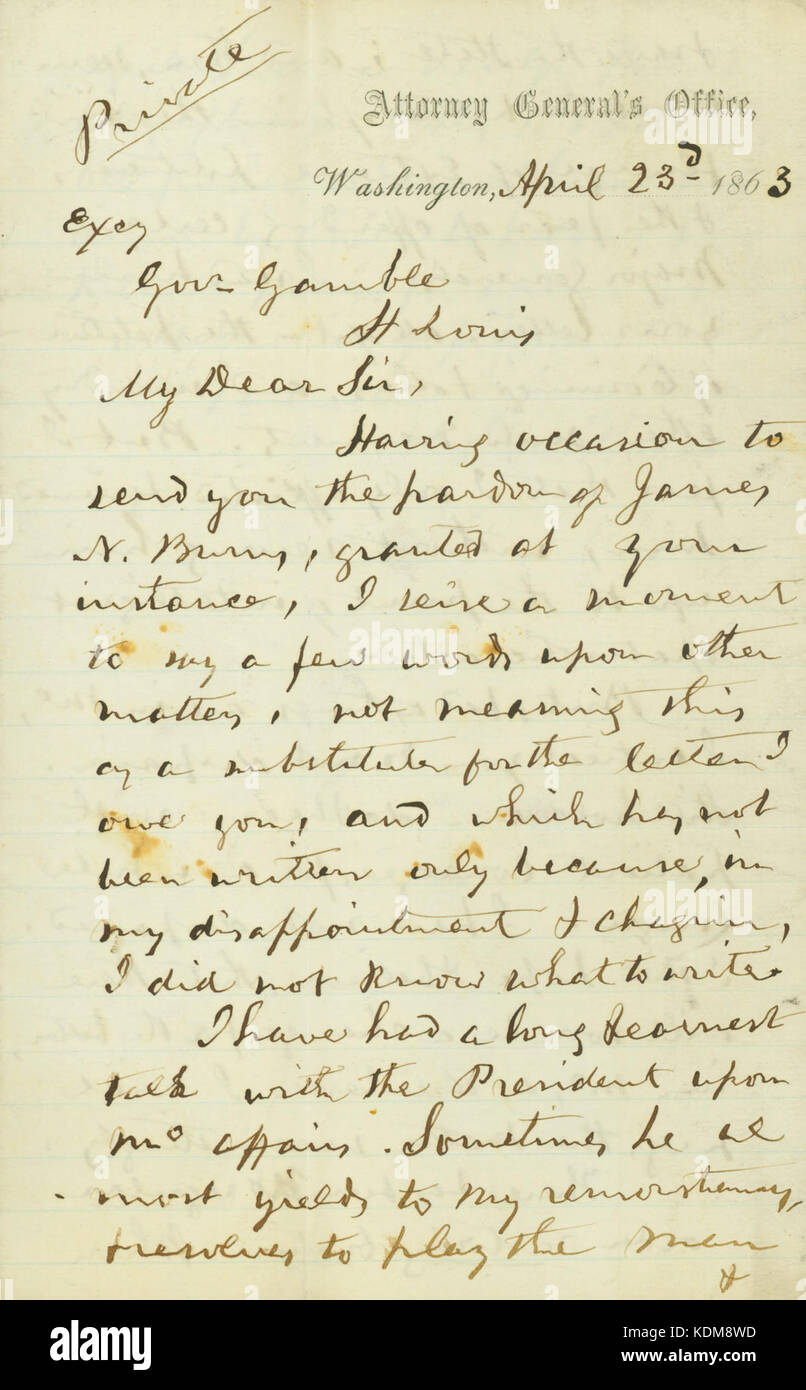 Private
Attorney General's Office,
Washington, April 23d 1863
Excy
Govr Gamble
St Louis
My Dear Sir,
Having occasion to
send you the pardon of James
N. Burns, granted at your
instance, I seise a moment
to say a few words upon other
matters, not meaning this
as a substitute for the letter I
owe you, and which has not
been written only because, in
my disappointment & chagrin,
I did not know what to write.
I have had a long & earnest
talk with the President upon
Mo affairs. Sometimes he al
most yields to my remonstrances,
& resolves to play the man
&
alamy
Image ID: KDM8WD
www.alamy.com